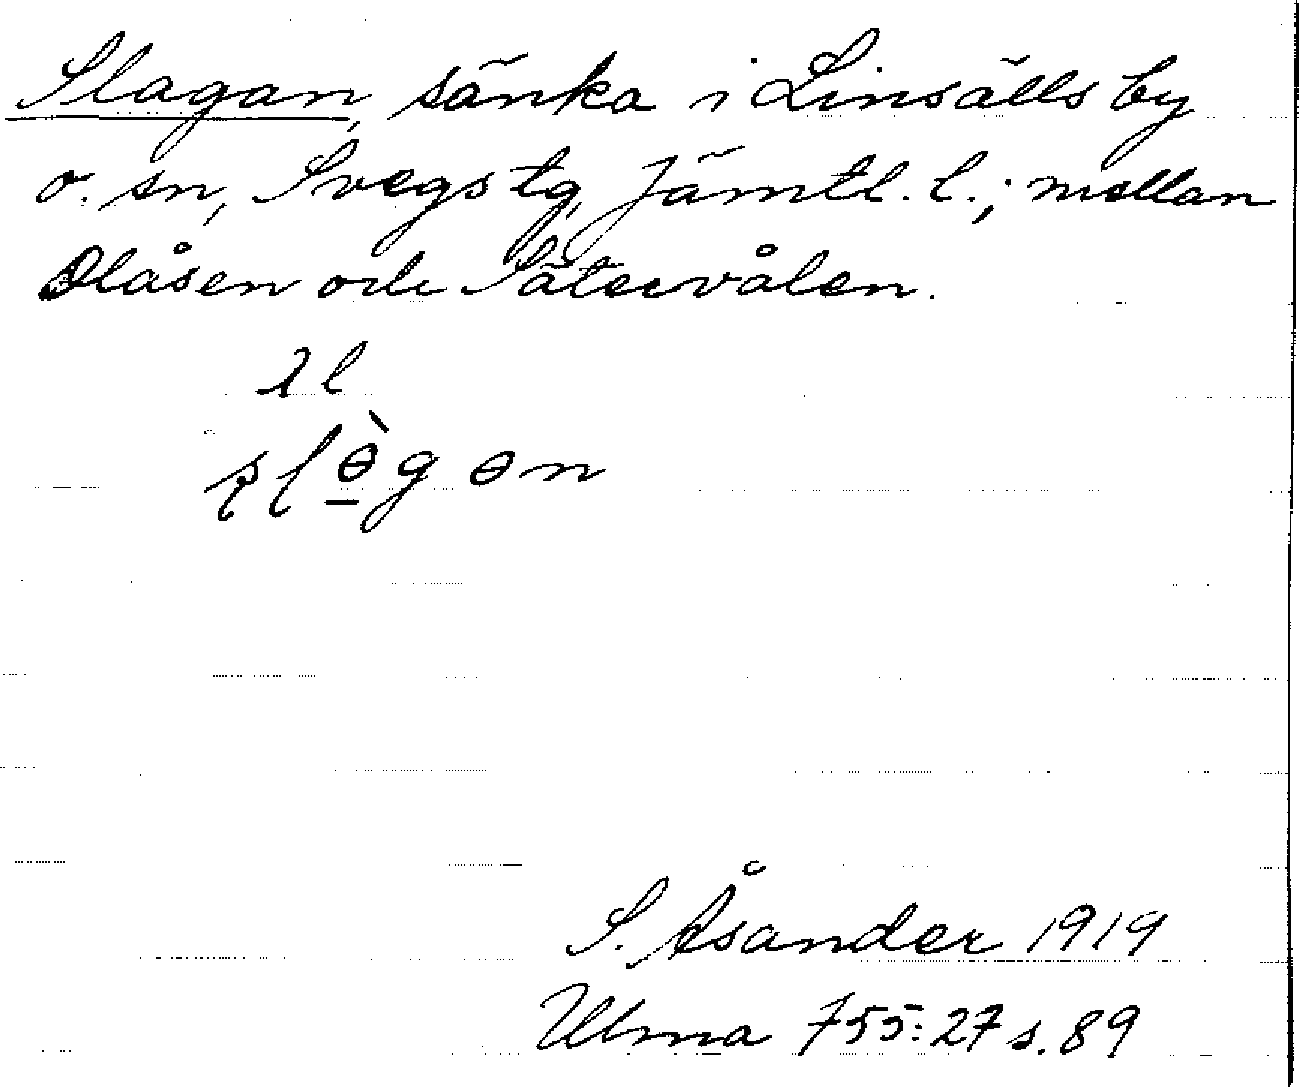 Slagan, sänka i Linsälls by
o. sn, Svegs tg, Jämtl. l.; mellan
Olåsen och Sätervålen.
sl
slɵ̀gɵn
S. Åsander 1919
Ulma 755:27 s. 89